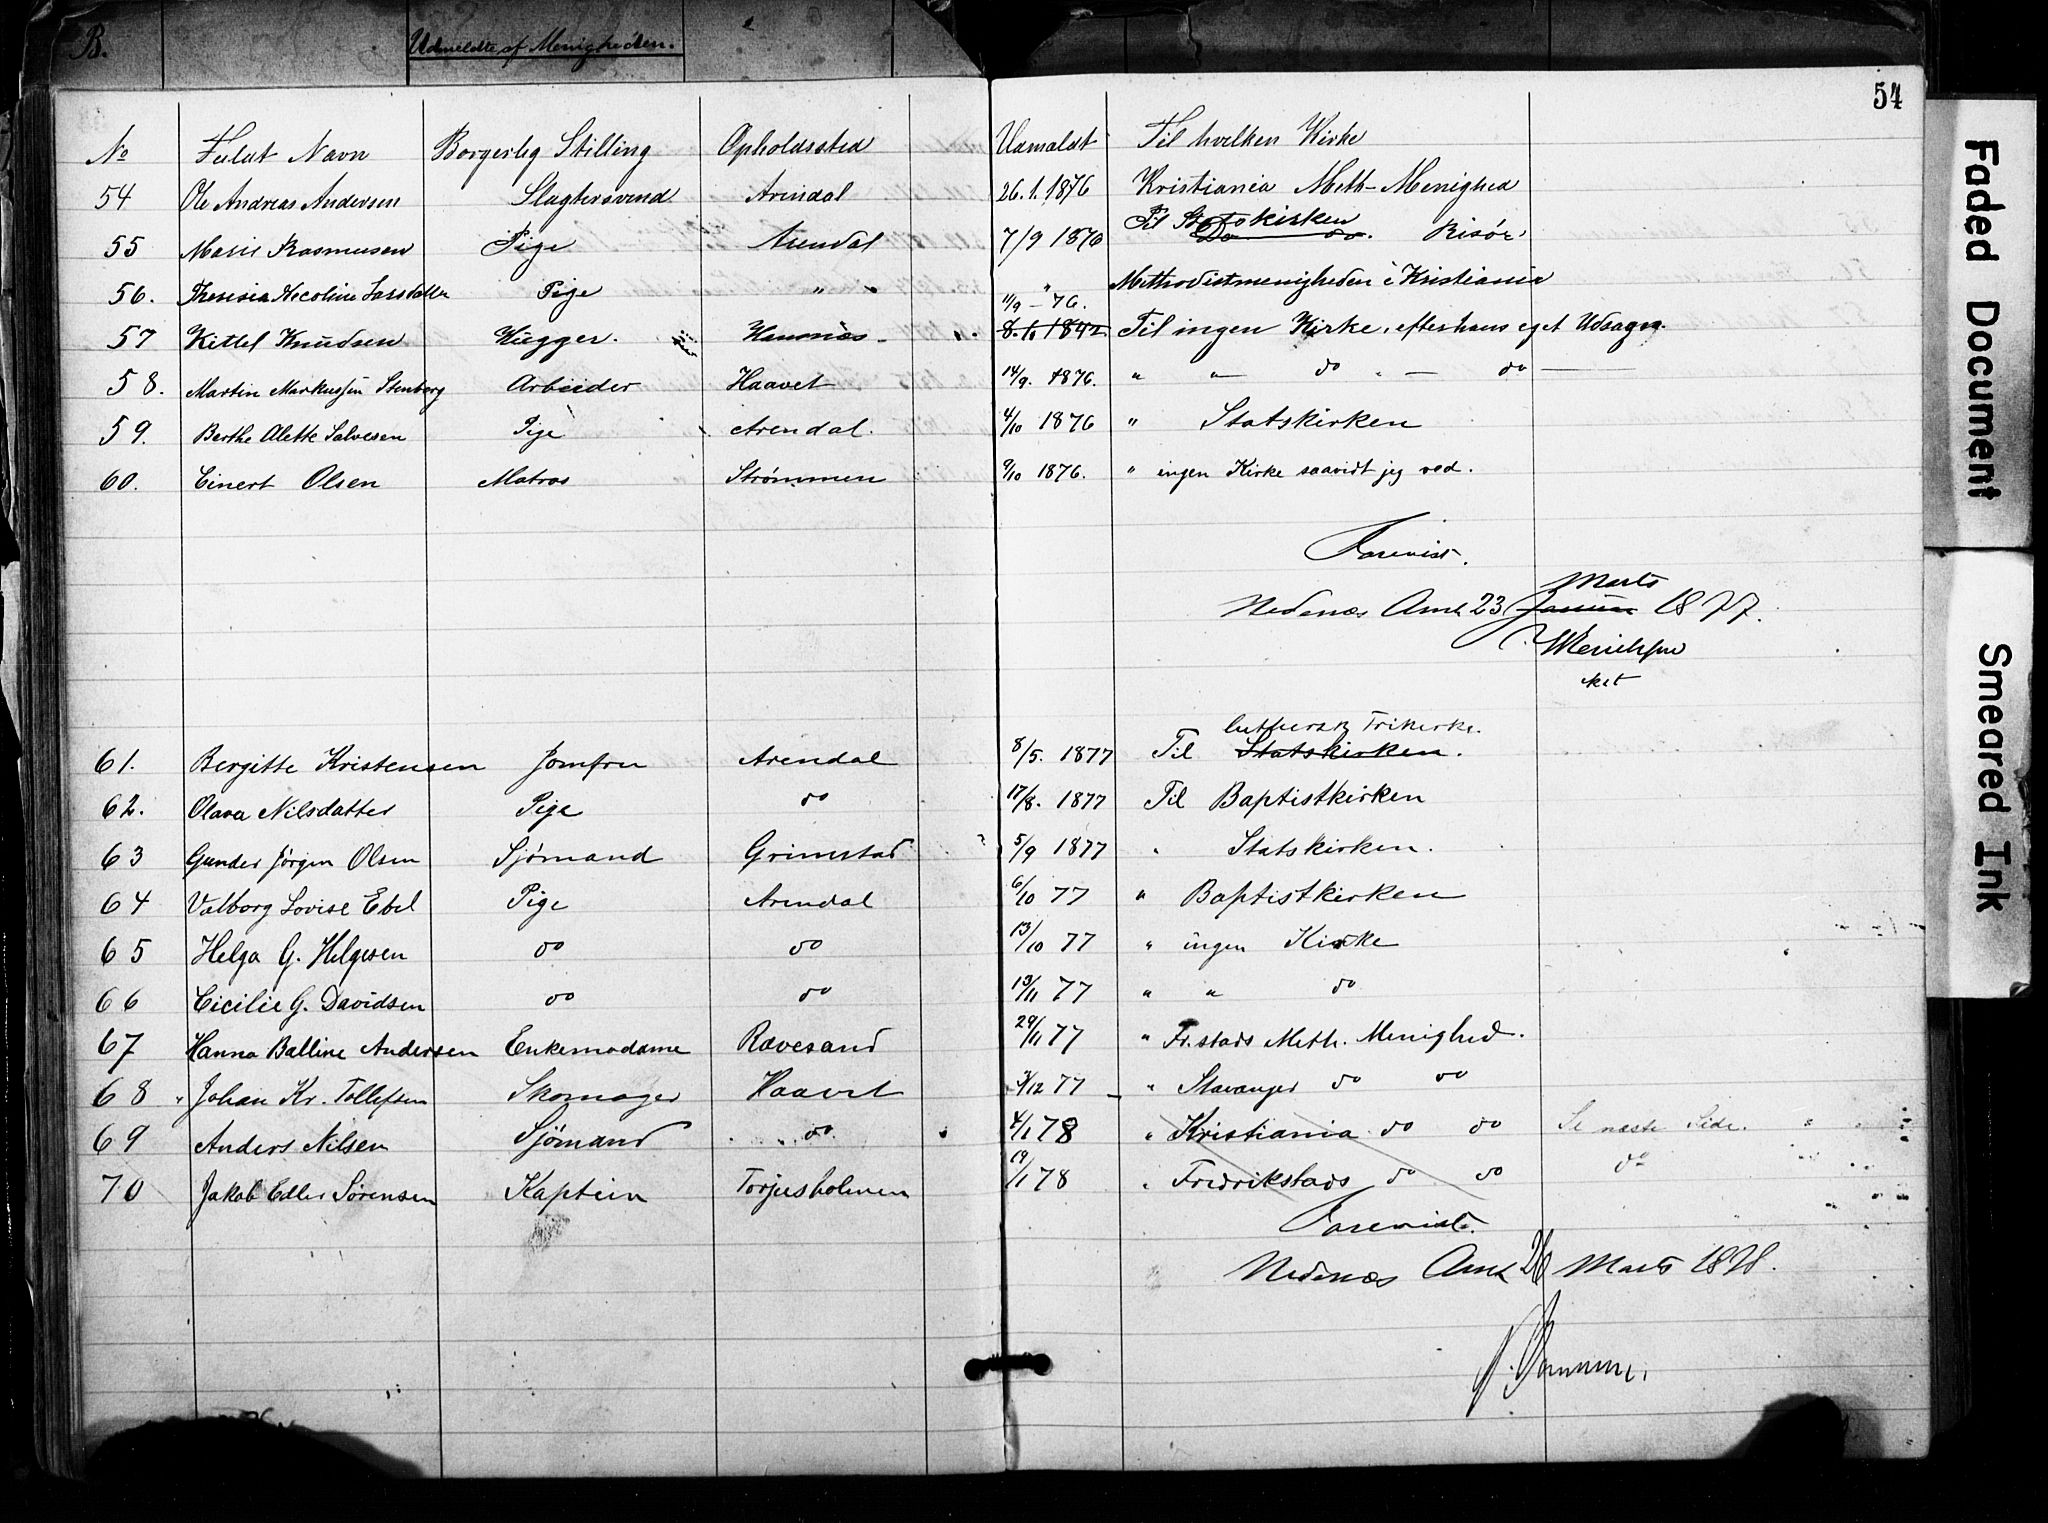 B. Udmeldte af Menigheden.
54
No Fuldt Navn Borgerlig Stilling Opholdssted Udmeldt Til hvilken Kirke
54 Ole Andreas Andersen Slagtersvend Arendal 26.1.1876 Kristiania Meth-Menighed
55 Marie Rasmusen Pige Arendal 7/9 1876 Til Statskirken Do do. Risör
56. Theresia Necoline Larsdatter Pige " " " Methodistmenigheden i Kristiania
57 Kittel Knudsen Hugger. 11/9 - 76. 8.6 1842 Til ingen Kirke, efter hans eget Udsagn.
58. Martin Markussen Stenborg Arbeider Haavet 14/9. 1876. " " do " — do —
59. Berthe Alette Salvesen Pige Arendal. 4/10 1876 " Statskirken
60. Einert Olsen Matros Strømmen 9/10 1876. " ingen Kirke saavidt jeg ved.
Forevist.
Marts
Nedenæs Amt 23 Januar 1877.
luthersk Frikirke.
61. Bergitte Kristensen Jomfru Arendal 8/5. 1877 Til Statskirken.
62. Olava Nilsdatter Pige do 17/8. 1877 Til Baptistkirken
63 Gunder Jörgen Olsen Sjömand Grimstad 5/9 1877 " Statskirken.
64 Valborg Lovise Ebel Pige Arendal 6/10 77 " Baptistkirken
65 Helga G. Helgesen do do 13/10 77 " ingen Kirke
66 Cicilie G. Davidsen do do 13/11 77 " " do
67 Hanna Balline Andersen Enkemadame Ravesand 29/11 77 " Fr.stads Meth. Menighed.
68 " Johan Kr. Tollefsen Skomager Haavet 3/12 77 " Stavanger do do
69 Anders Nilsen Sjömand do 4/1 78 " Kristiania do do Se næste Side.
70 Jakob Edler Sörensen Kaptein Torjusholmen 19/1 78 " Fredrikstads do do do
Forevist.
Nedenæs Amt 26 Marts 1878.
Faded Document
Smeared Ink